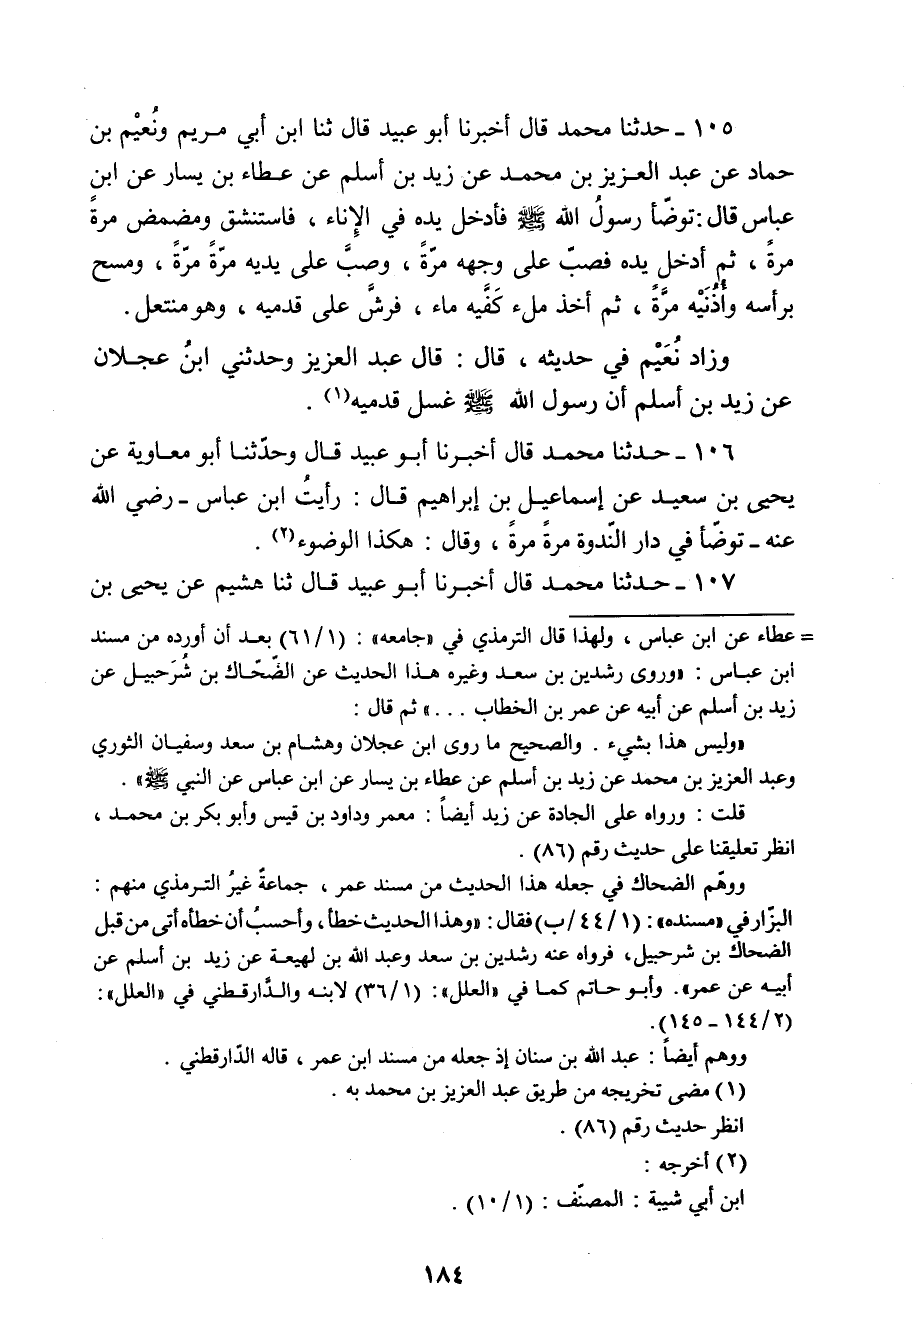 ١٠٥ ـ حدثنا محمد قال أخبرنا أبو عبيد قال ثنا ابن أبي مريم ونُعيْم بن
حماد عن عبد العزيز بن محمد عن زيد بن أسلم عن عطاء بن يسار عن ابن
عباس قال: توضّأ رسولُ الله ﷺ فأدخل يده في الإِناء ، فاستنشق ومضمض مرةً
مرةً ، ثم أدخل يده فصبّ على وجهه مرّةً ، وصبَّ على يديه مرّةً مرّةً ، ومسح
برأسه وأُذُنَيْه مرَّةً ، ثم أخذ ملء كَفَّيه ماء ، فرشَّ على قدميه ، وهو منتعل .
وزاد نُعَيْم في حديثه ، قال : قال عبد العزيز وحدثني ابنُ عجلان
عن زيد بن أسلم أن رسول الله ﷺ غسل قدميه(١) .
١٠٦ ـ حدثنا محمد قال أخبرنا أبو عبيد قال وحدّثنا أبو معاوية عن
يحيى بن سعيد عن إسماعيل بن إبراهيم قال : رأيتُ ابن عباس ـ رضي الله
عنه ـ توضّأ في دار النّدوة مرةً مرةً ، وقال : هكذا الوضوء(٢) .
١٠٧ ـ حدثنا محمد قال أخبرنا أبو عبيد قال ثنا هشيم عن يحيى بن
= عطاء عن ابن عباس ، ولهذا قال الترمذي في «جامعه» : (٦١/١) بعد أن أورده من مسند
ابن عباس : «وروى رشدين بن سعد وغيره هذا الحديث عن الضّحّاك بن شُرَحبيل عن
زيد بن أسلم عن أبيه عن عمر بن الخطاب ...» ثم قال :
«وليس هذا بشيء . والصحيح ما روى ابن عجلان وهشام بن سعد وسفيان الثوري
وعبد العزيز بن محمد عن زيد بن أسلم عن عطاء بن يسار عن ابن عباس عن النبي ﷺ» .
قلت : ورواه على الجادة عن زيد أيضاً : معمر وداود بن قيس وأبو بكر بن محمد ،
انظر تعليقنا على حديث رقم (٨٦) .
ووهّم الضحاك في جعله هذا الحديث من مسند عمر ، جماعةٌ غيرُ الترمذي منهم :
البزّار في «مسنده» : (١/٤٤/ب) فقال : «وهذا الحديث خطأ ، وأحسبُ أن خطأه أتى من قبل
الضحاك بن شرحبيل، فرواه عنه رشدين بن سعد وعبد الله بن لهيعة عن زيد بن أسلم عن
أبيه عن عمر». وأبو حاتم كما في «العلل»: (٣٦/١) لابنه والدَّارقطني في «العلل»:
(١٤٤/٢ - ١٤٥).
ووهم أيضاً : عبد الله بن سنان إذ جعله من مسند ابن عمر ، قاله الدّارقطني .
(١) مضى تخريجه من طريق عبد العزيز بن محمد به .
انظر حديث رقم (٨٦) .
(٢) أخرجه :
ابن أبي شيبة : المصنّف : (١٠/١) .
١٨٤